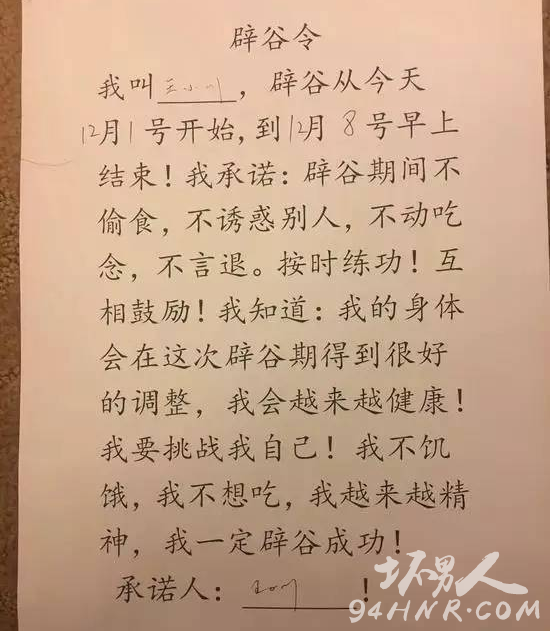 辟谷令
我叫王小川，辟谷从今天
12月1号开始，到12月8号早上
结束！我承诺：辟谷期间不
偷食，不诱惑别人，不动吃
念，不言退。按时练功！互
相鼓励！我知道：我的身体
会在这次辟谷期得到很好
的调整，我会越来越健康！
我要挑战我自己！我不饥
饿，我不想吃，我越来越精
神，我一定辟谷成功！
承诺人：！
坏男人
94HNR.COM